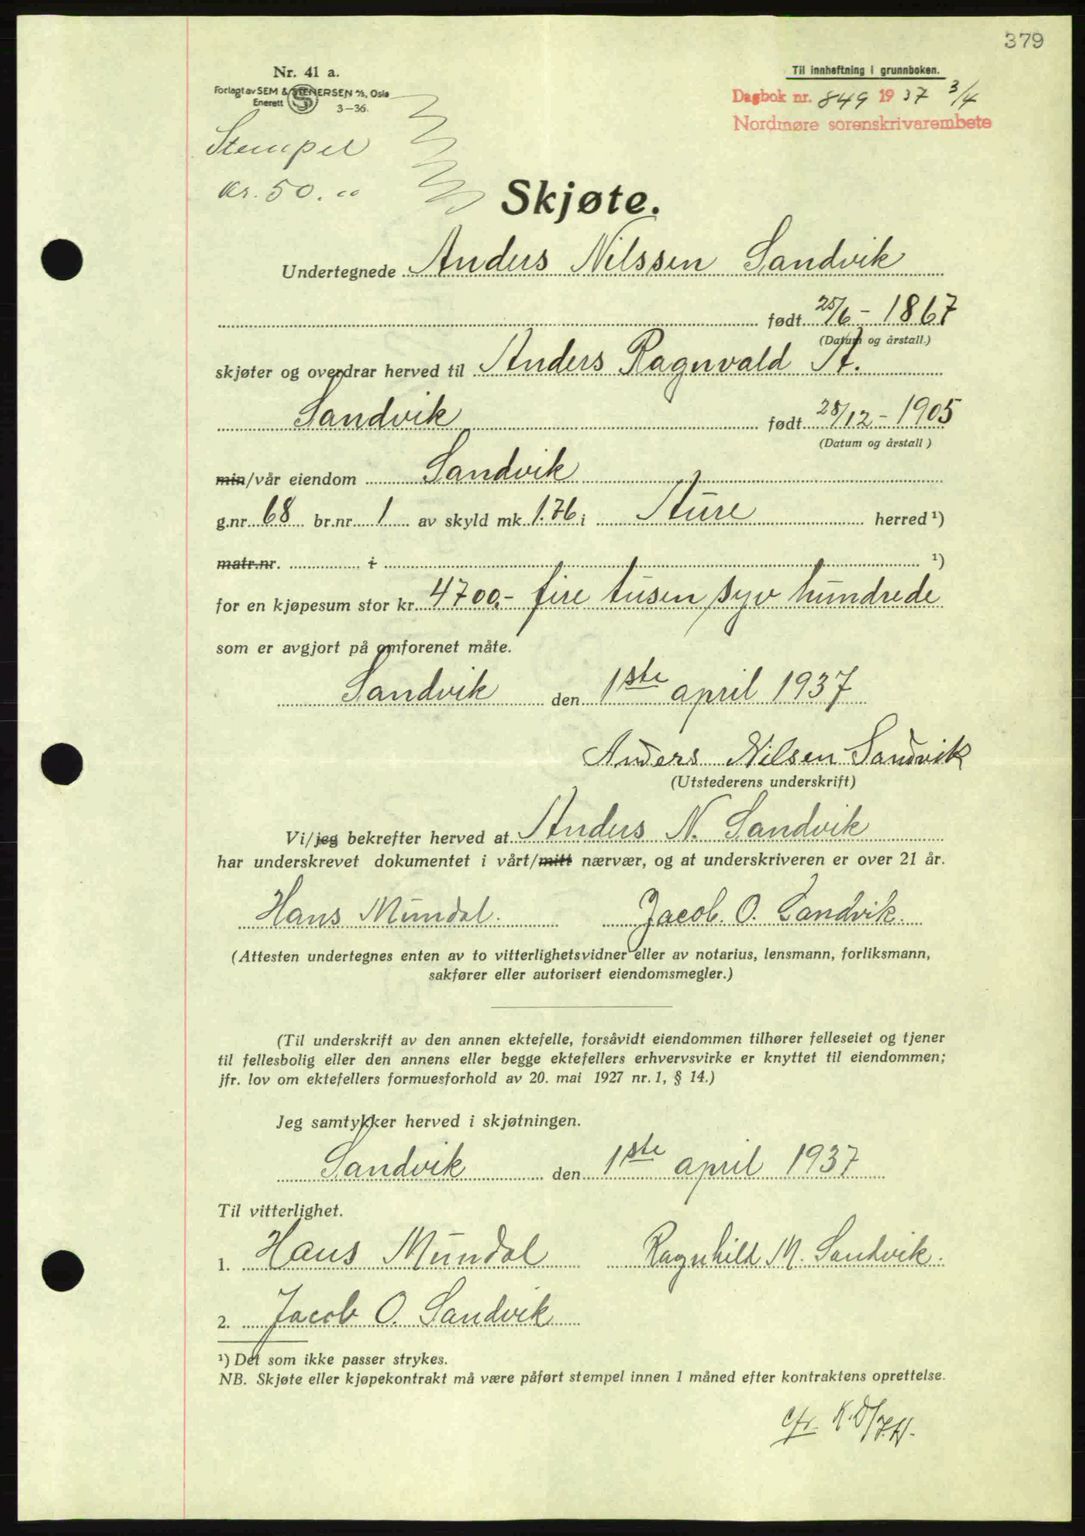 379
Nr. 41 a.
Forlagt av SEM & STENERSEN A/S, Oslo
Enerett 3-36.
Til innheftning i grunnboken.
Dagbok nr. 849 1937 3/4
Nordmøre sorenskrivarembete
Stempel
kr. 50.00
Skjøte.
Undertegnede Anders Nilssen Sandvik
født 25/6 - 1867
(Datum og årstall.)
skjøter og overdrar herved til Anders Ragnvald A.
Sandvik født 28/12 - 1905
(Datum og årstall)
min/vår eiendom Sandvik
g.nr. 68 br.nr. 1 av skyld mk. 1.76 i Aure herred ¹)
matr.nr. i ¹)
for en kjøpesum stor kr. 4700,- fire tusen syv hundrede
som er avgjort på omforenet måte.
Sandvik den 1ste april 1937
Anders Nilsen Sandvik
(Utstederens underskrift)
Vi/jeg bekrefter herved at Anders N. Sandvik
har underskrevet dokumentet i vårt/mitt nærvær, og at underskriveren er over 21 år.
Hans Mundal. Jacob. O. Sandvik.
(Attesten undertegnes enten av to vitterlighetsvidner eller av notarius, lensmann, forliksmann,
sakfører eller autorisert eiendomsmegler.)
(Til underskrift av den annen ektefelle, forsåvidt eiendommen tilhører felleseiet og tjener
til fellesbolig eller den annens eller begge ektefellers erhvervsvirke er knyttet til eiendommen;
jfr. lov om ektefellers formuesforhold av 20. mai 1927 nr. 1, § 14.)
Jeg samtykker herved i skjøtningen.
Sandvik den 1ste april 1937
Til vitterlighet.
1. Hans Mundal Ragnhild M. Sandvik.
2. Jacob O. Sandvik
¹) Det som ikke passer strykes.
NB. Skjøte eller kjøpekontrakt må være påført stempel innen 1 måned efter kontraktens oprettelse.
cfr.